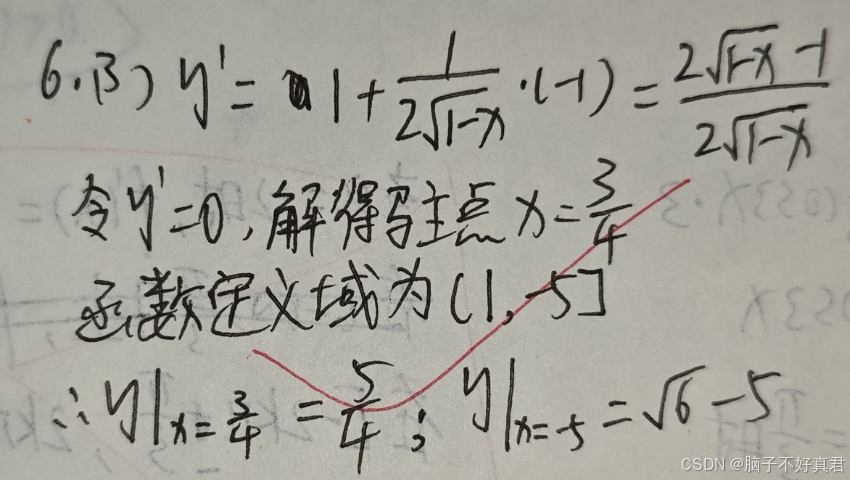 6.(3) y' = 1 + \frac{1}{2\sqrt{1-x}}·(-1) = \frac{2\sqrt{1-x}-1}{2\sqrt{1-x}}
令y'=0,解得驻点x=\frac{3}{4}
函数定义域为(1,-5]
∴y|_{x=\frac{3}{4}} = \frac{5}{4}; y|_{x=-5} = \sqrt{6}-5
CSDN @脑子不好真君